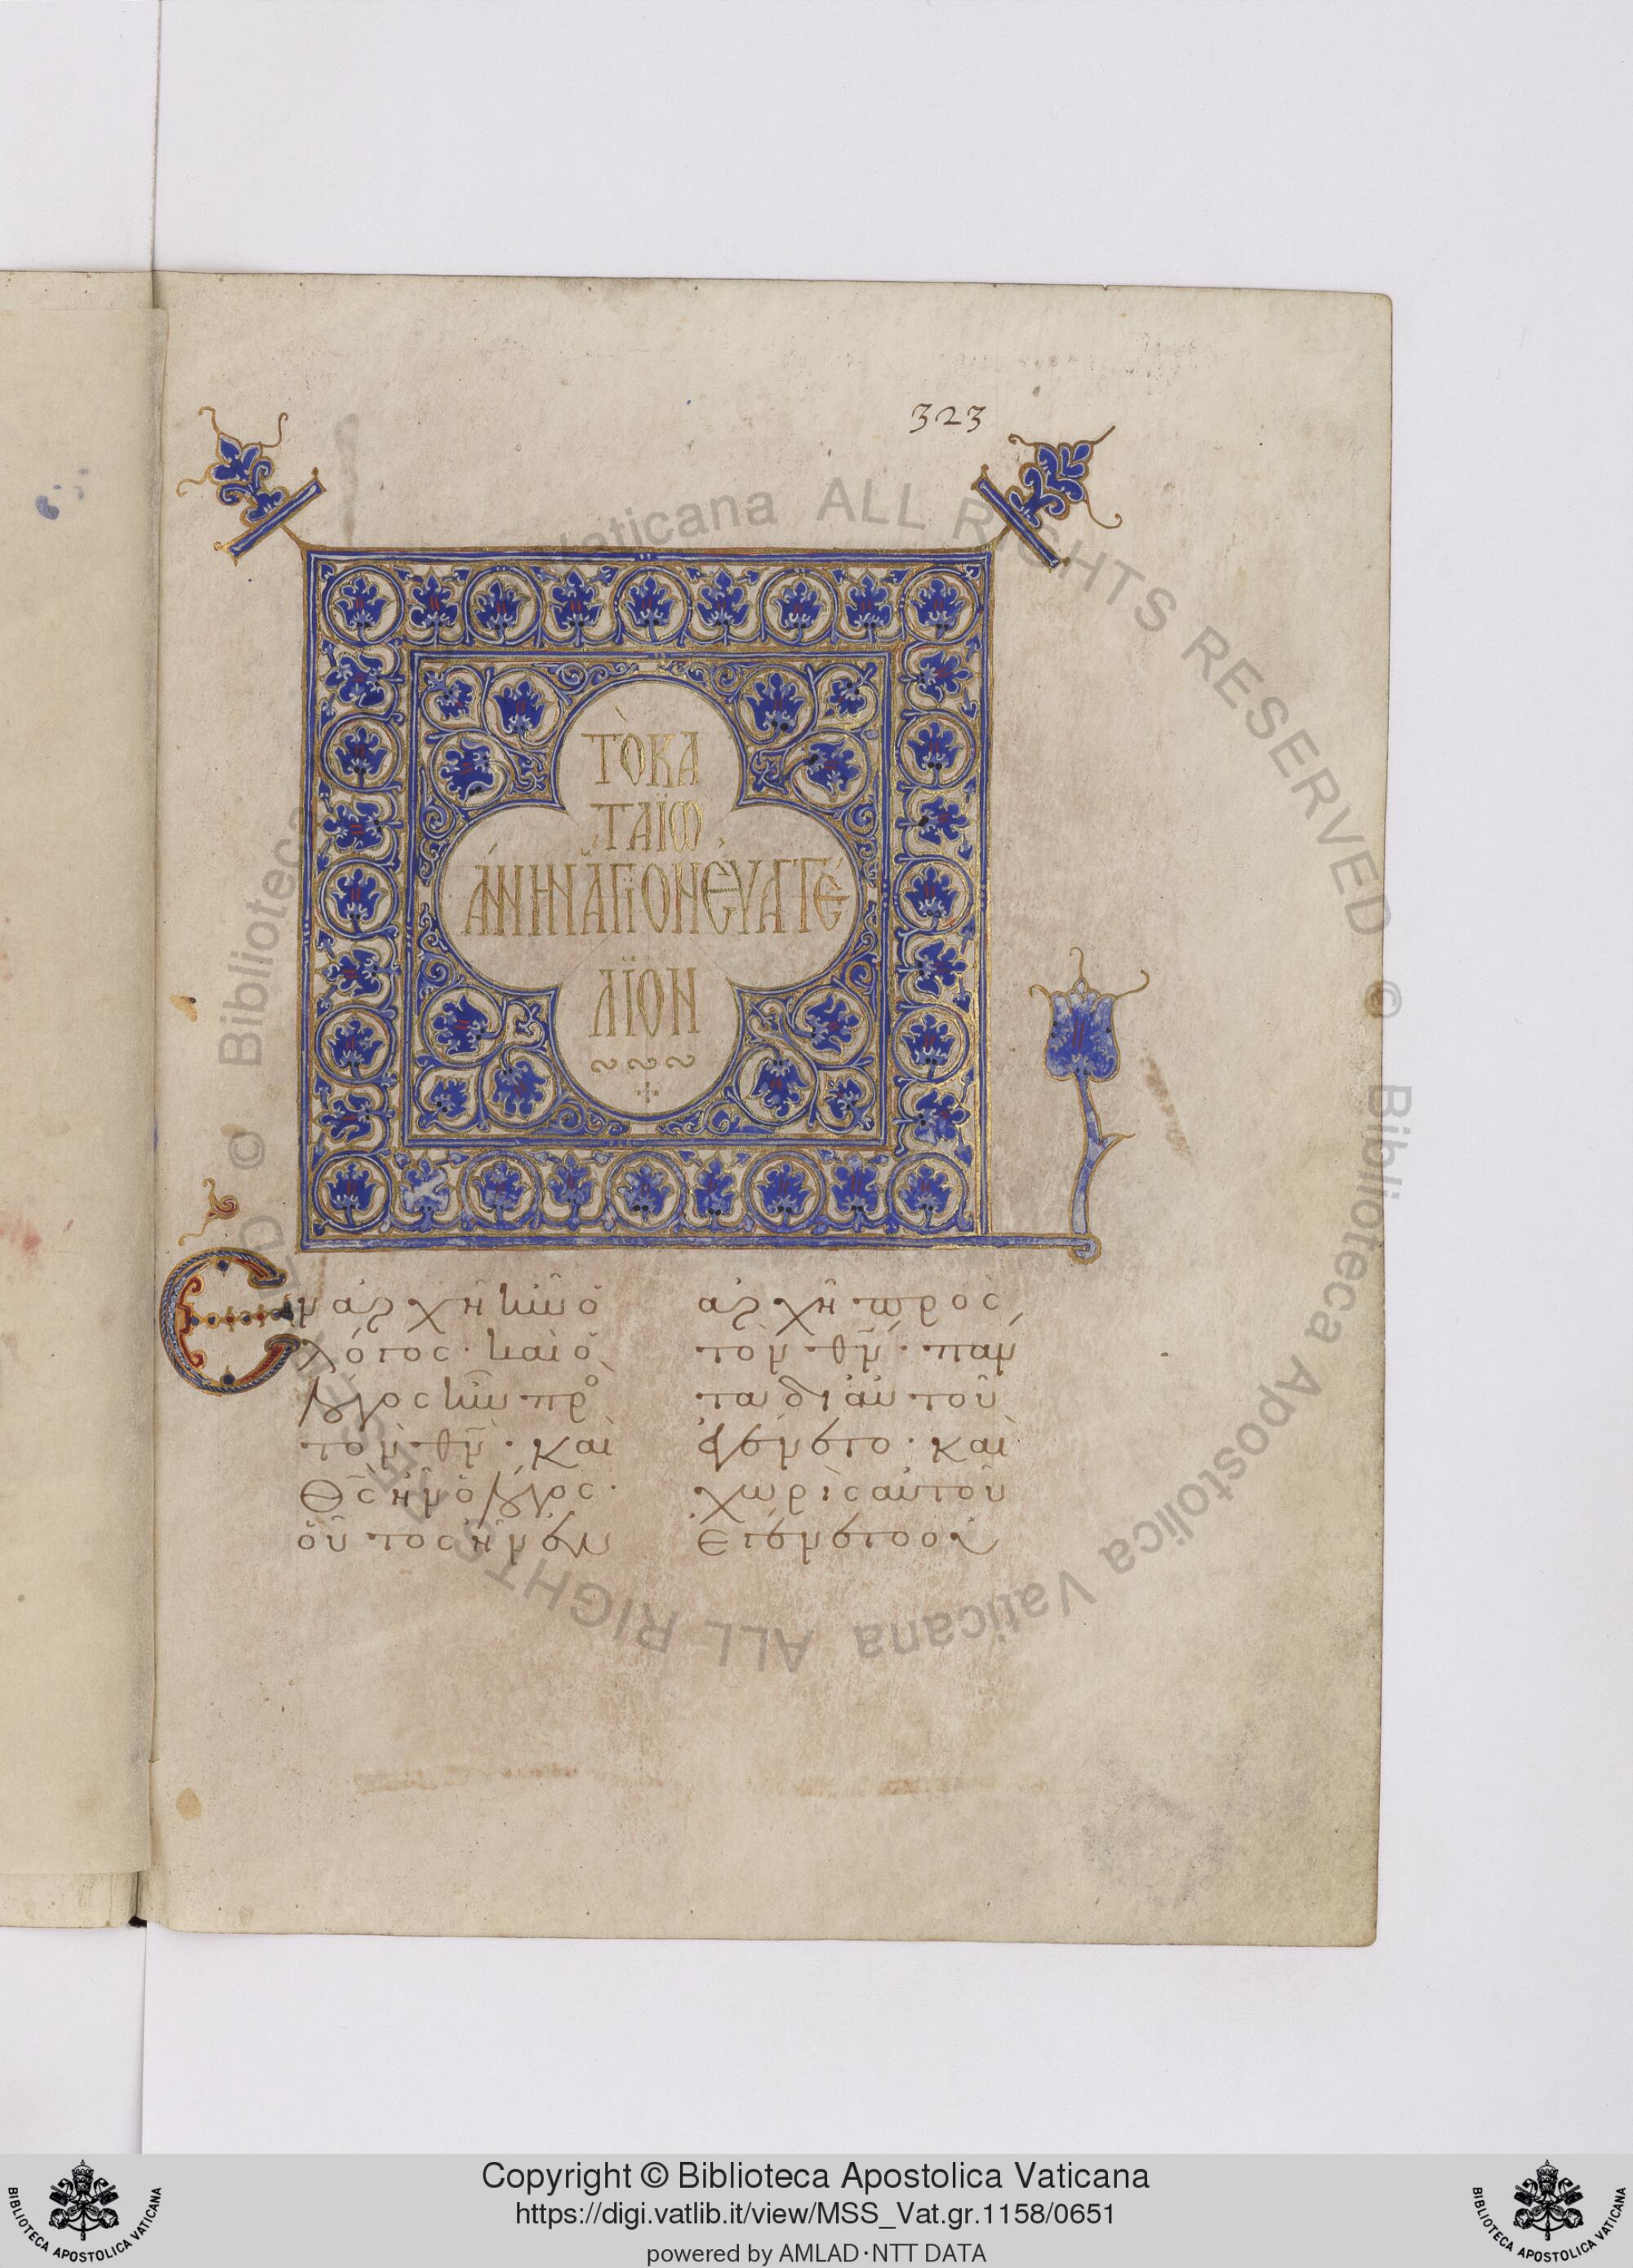 323
ΤΟ ΚΑ
ΤΑ ΪΩ
ΑΝΝΗΝ ΑΓΙΟΝ ΕΥΑΓΓΕ
ΛΪΟΝ
Ἐν ἀρχῆ ἦν ὁ
λόγος· καὶ ὁ
λόγος ἦν πρὸ
τὸν θν̄· καὶ
θς̄ ἦν ὁ λόγος·
οὗτος ἦν ἐν
ἀρχῆ πρὸς
τὸν θν̄· πάν
τα δι αὐτοῦ
ἐγένετο· καὶ
χωρὶς αὐτοῦ
ἐγένετο οὐ
© Biblioteca Apostolica Vaticana ALL RIGHTS RESERVED © Biblioteca Apostolica Vaticana ALL RIGHTS RESERVED
Copyright © Biblioteca Apostolica Vaticana
https://digi.vatlib.it/view/MSS_Vat.gr.1158/0651
powered by AMLAD·NTT DATA
BIBLIOTECA APOSTOLICA VATICANA
BIBLIOTECA APOSTOLICA VATICANA